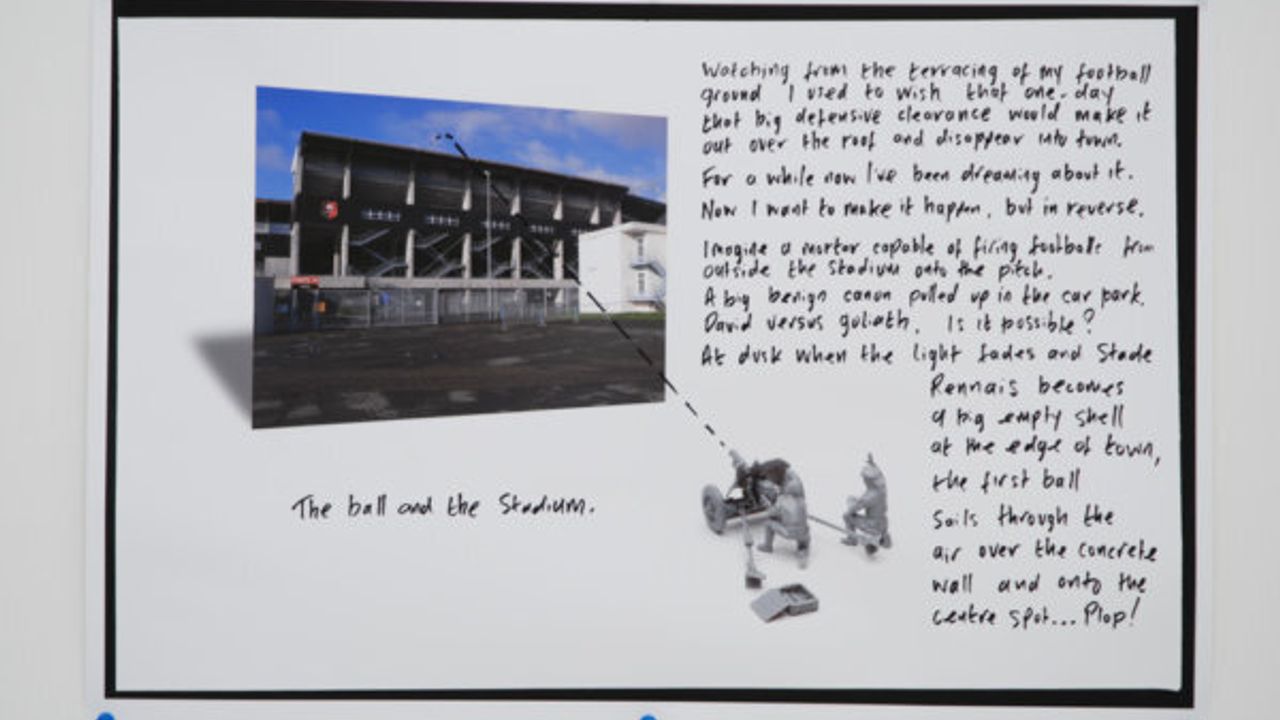 Watching from the terracing of my football
ground I used to wish that one-day
that big defensive clearance would make it
out over the roof and disappear into town.
For a while now I've been dreaming about it.
Now I want to make it happen, but in reverse.
Imagine a mortar capable of firing footballs from
outside the stadium onto the pitch.
A big benign canon pulled up in the car park.
David versus goliath. Is it possible?
At dusk when the light fades and Stade
Rennais becomes
a big empty shell
at the edge of town,
the first ball
sails through the
air over the concrete
wall and onto the
centre spot... Plop!
The ball and the Stadium.